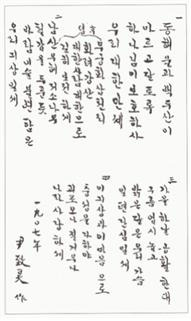 一
동해물과 백두산이
마르고 달토록
하나님이 보호하사
우리 대한만세
후렴
무궁화 삼천리
화려강산
대한사람 대한으로
길이 보전하세
二
남산우에 저 소나무
철갑을 두른듯
바람이슬 불변함은
우리 긔상일세
三
가을하날 공활한대
구름업시 놉고
밝은달은 우리가슴
일편단심일세
四
이긔상과 이마음으로
충성을 다하야
괴로오나 질거우나
나라사랑하세
一九○七年
尹致昊 作